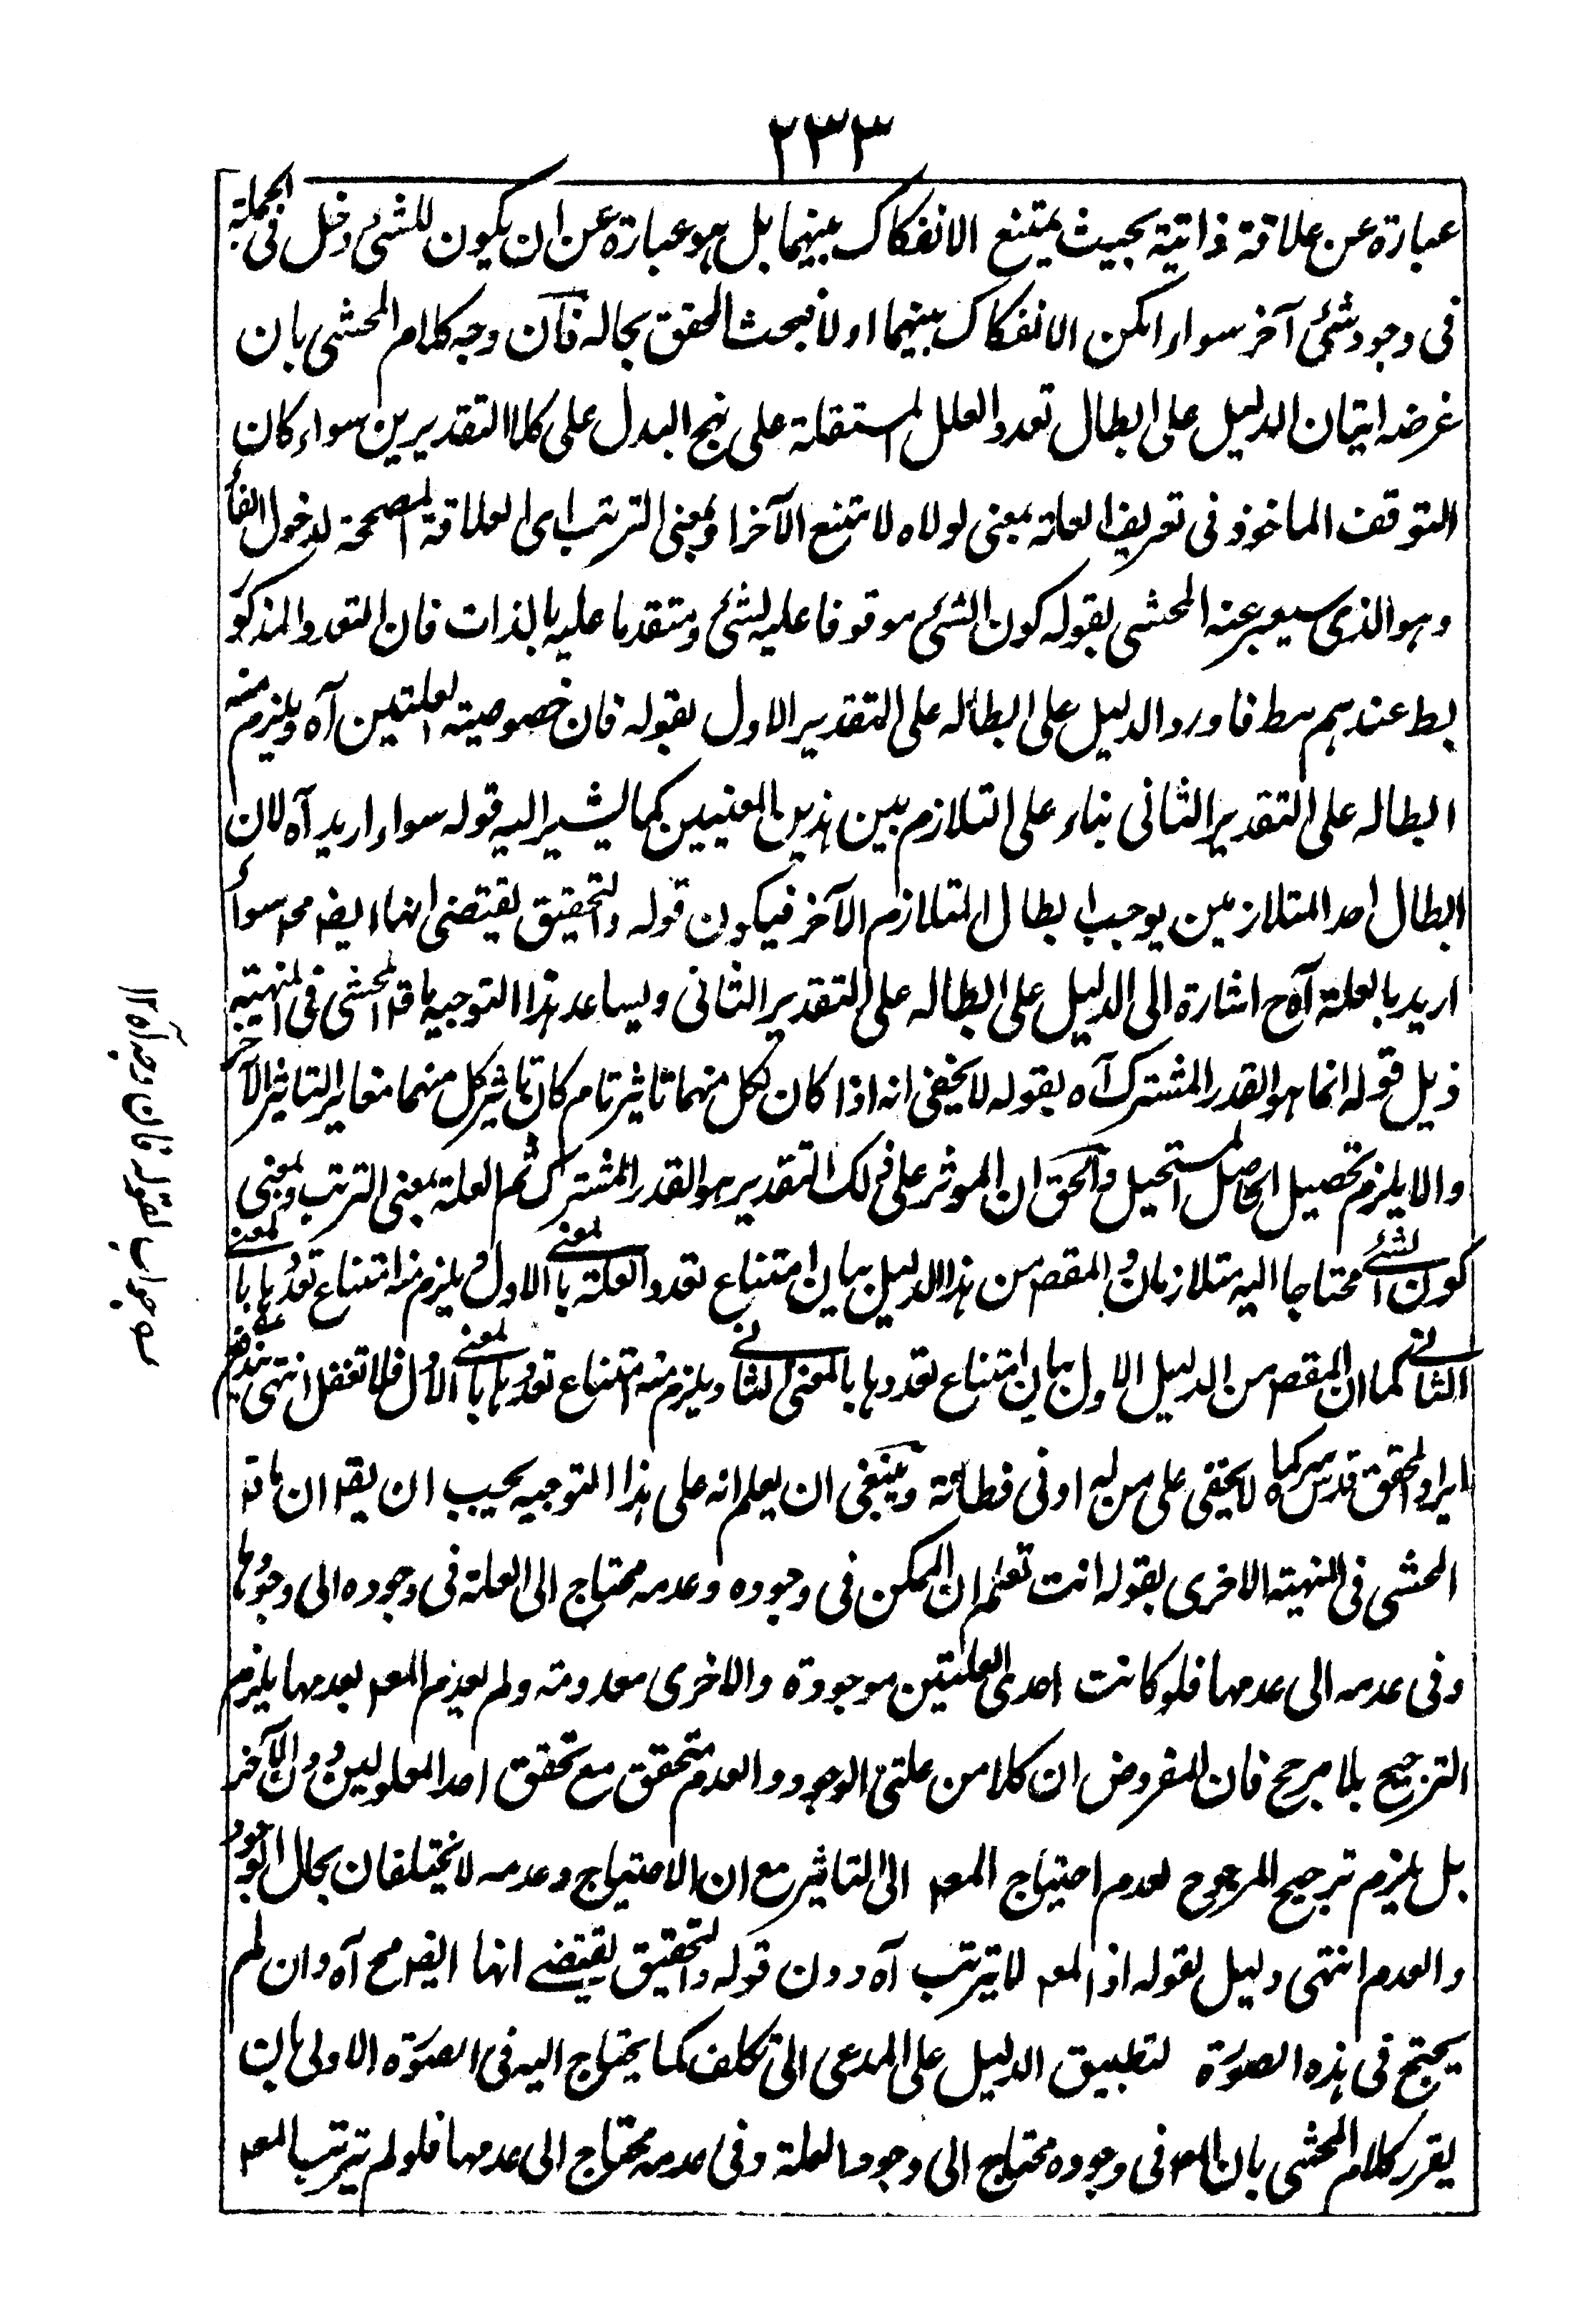 ٢٣٣
عبارة عن علاقة ذاتية بحيث يمتنع الانفكاك بينهما بل هو عبارة عن ان يكون للشئ دخل فى الجملة
فى وجود شئ آخر سواء امكن الانفكاك بينهما اولا فبحث المحقق بحاله فان وجه كلام المحشى بان
غرضه اتيان الدليل على ابطال تعدد العلل المستقلة على نهج البدل على كلا التقديرين سواء كان
التوقف الماخوذ فى تعريف العلة بمعنى لولاه لامتنع الآخر او بمعنى الترتب اى العلاقة المصححة لدخول الفاء
وهو الذى سيعبر عنه المحشى بقوله كون الشئ موقوفا عليه لشئ ومتقدما عليه بالذات فان التعدد المذكور
بط عندهم مط فاورد الدليل على ابطاله على التقدير الاول بقوله فان خصوصية العلتين آه ويلزم منه
ابطاله على التقدير الثانى بناء على التلازم بين هذين المعنيين كما يشير اليه قوله سواء اريد آه لان
ابطال احد المتلازمين يوجب ابطال المتلازم الآخر فيكون قوله والتحقيق يقتضى انها ايضا مح سواء
اريد بالعلة آه ح اشارة الى الدليل على ابطاله على التقدير الثانى ويساعد هذا التوجيه ما قال المحشى فى المنهية
ذيل قوله انما هو القدر المشترك آه بقوله لا يخفى انه اذا كان لكل منهما تاثير تام كان تاثير كل منهما مغاير التاثير الآخر
والا يلزم تحصيل الحاصل المستحيل والحق ان الموثر على ذلك التقدير هو القدر المشترك ثم العلة بمعنى الترتب وبمعنى
كون الشئ محتاجا اليه متلازمان والمقصم من هذا الدليل بيان امتناع تعدد العلة بالمعنى الاول ويلزم منه امتناع تعددها بالمعنى
الثانى كما ان المقصم من الدليل الاول بيان امتناع تعددها بالمعنى الثانى ويلزم منه امتناع تعددها بالمعنى الاول فلا تغفل انتهى
ايراد المحقق قدس سره كما لا يخفى على من له ادنى فطانة وينبغى ان يعلم انه على هذا التوجيه يجب ان يقم ان ما قم
المحشى فى المنهية الاخرى بقوله انت تعلم ان الممكن فى وجوده وعدمه محتاج الى العلة فى وجوده الى وجودها
وفى عدمه الى عدمها فلو كانت احدى العلتين موجودة والاخرى معدومة ولم يعدم المعم بعدمها يلزم
الترجيح بلا مرجح فان المفروض ان كلا من علتى الوجود والعدم متحقق مع تحقق احد المعلولين دون الآخر
بل يلزم ترجيح المرجوح لعدم احتياج المعم الى التاثير مع ان الاحتياج وعدمه لا يختلفان بحال الوجود
والعدم انتهى دليل لقوله اذ المعم لا يترتب آه دون قوله والتحقيق يقتضى انها ايضم مح آه وان لم
يحتج فى هذه الصورة لتطبيق الدليل على المدعى الى تكلف كما يحتاج اليه فى الصورة الاولى بان
يقرر كلام المحشى بان المعم فى وجوده محتاج الى وجود العلة وفى عدمه محتاج الى عدمها فلو لم يترتب المعم
جواب لقوله فان وجه آه ١٢